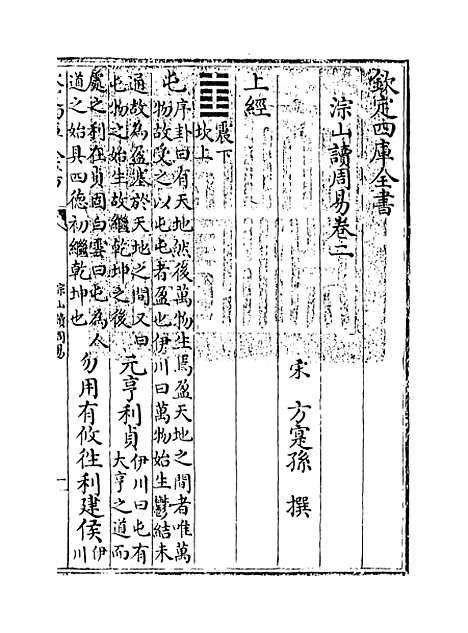 欽定四庫全書
淙山讀周易卷二
宋 方寔孫 撰
上經
震下
坎上
屯序卦曰有天地然後萬物生焉盈天地之間者唯萬
物故受之以屯屯者盈也伊川曰萬物始生鬱結未
通故為盈塞於天地之間又曰
屯物之始生故繼乾坤之後
元亨利貞
伊川曰屯有
大亨之道而
處之利在貞固白雲曰屯為人
道之始具四德初繼乾坤也
勿用有攸往利建侯
伊
川
淙山讀周易
一